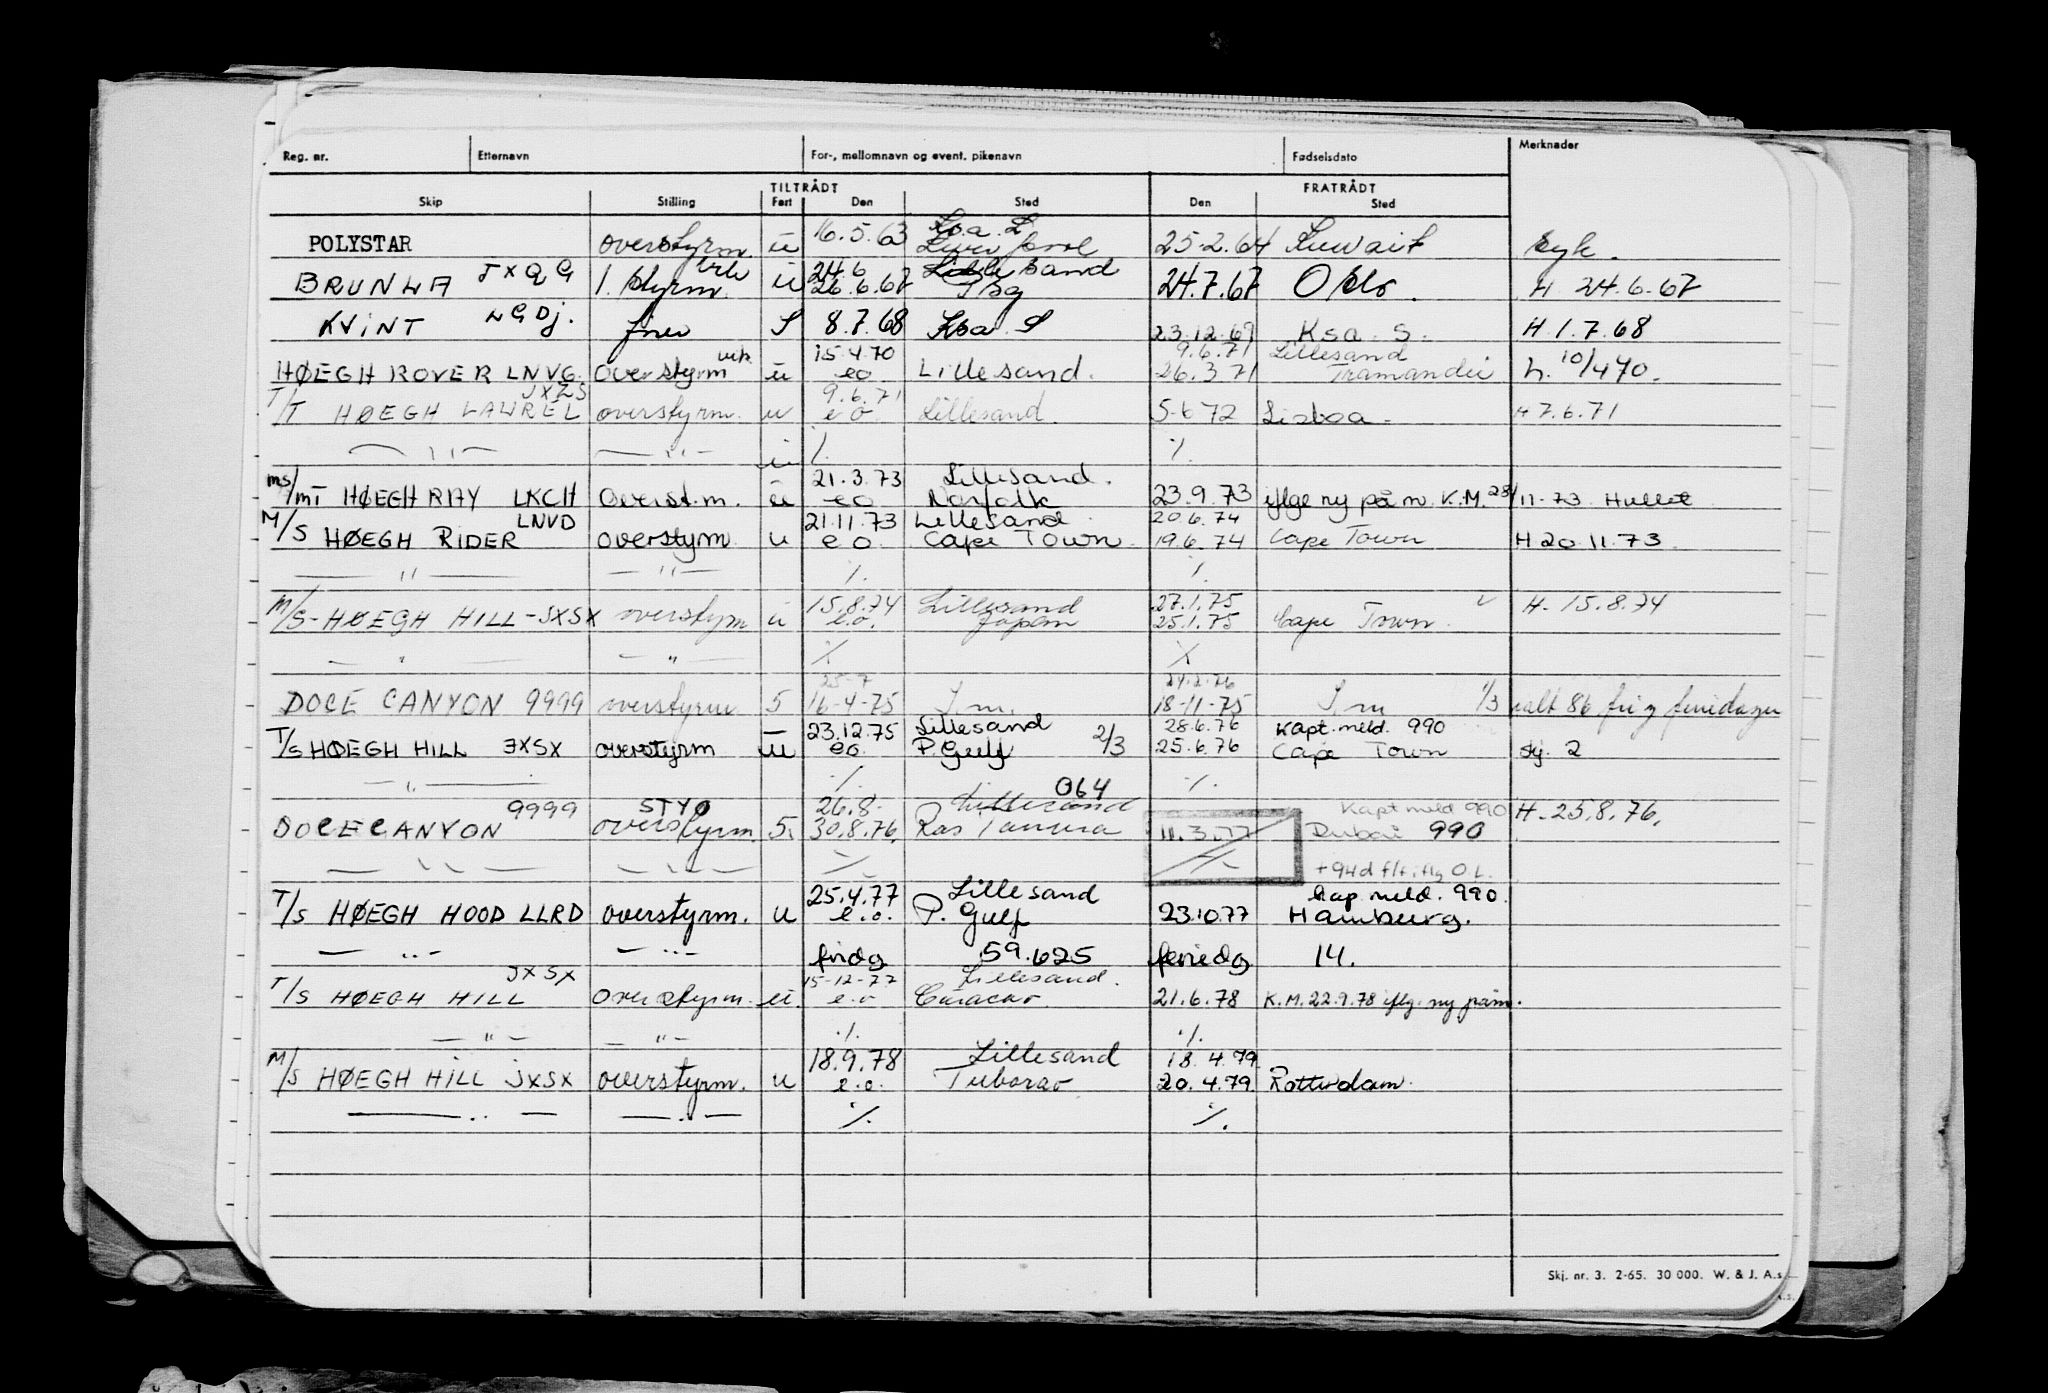 Reg. nr. Etternavn For-, mellomnavn og event. pikenavn Fødselsdato Merknader
TILTRÅDT FRATRÅDT
Skip Stilling Fart Den Sted Den Sted
Ksa. L
POLYSTAR overstyrm. u 16.5.63 Liverpool 25.2.64 Kuwait syk.
24.6 Lillesand
BRUNLA JXQG 1. styrm. u 26.6.67 Tbg 24.7.67 Oslo. H 24.6.67
KVINT LGDJ. fører S 8.7.68 Ksa. S 23.12.69 Ksa. S. H. 1.7.68
vik. 15.4.70 9.6.71 Lillesand
HØEGH ROVER LNVG. Overstyrm u eo Lillesand. 26.3.71 Tramandei h. 10/4 70.
JXZS 9.6.71
T/T HØEGH LAUREL overstyrm. u e.o. Lillesand. 5-6 72 Lisboa. H 7.6.71
— " — — " — u % %
21.3.73 Lillesand.
ms/mT HØEGH RAY LKCH Overst.m. u eo Norfolk 23.9.73 iflge ny påm. K.M. 28/11-73. Hullet
LNVD 21.11.73 Lillesand 20.6.74
M/S HØEGH RIDER overstyrm. u e o. Cape Town. 19.6.74 Cape Town H 20.11.73.
— " — — " — % %
15.8.74 Lillesand 27.1.75
M/S-HØEGH HILL-JXSX overstyrm u e.o. Japan 25.1.75 Cape Town. H. 15.8.74
— " — — " — % %
25-7 24.2.76
DOCE CANYON 9999 overstyrm 5 16-4-75 I.m. 18-11-75 I.m 1/3 ialt 86 fri og feriedager
23.12.75 Lillesand 28.6.76 Kapt. meld. 990
T/S HØEGH HILL JXSX overstyrm u eo P. Gulf 2/3 25.6.76 Cape Town sj. 2
— " — % 064 %
9999 STYO 26.8- Lillesand Kapt meld 990 H. 25.8.76.
DOCE CANYON overstyrm. 5. 30.8.76. Ras Tanura 11.3.77 Dubai 990
— " — — " — % % +94d f/f iflg O.L.
25.4.77 Lillesand kap. meld. 990.
T/S HØEGH HOOD LLRD overstyrm. u e.o. P. Gulf 23.10.77 Hamburg.
— " — — " — fridg 59.625 feriedg 14.
JXSX 15-12-77 Lillesand.
T/S HØEGH HILL Overstyrm. u. e.o Curacao 21.6.78 K.M. 22.9.78 iflg. ny påm.
— " — — " — % %
18.9.78 Lillesand 18.4.79
M/S HØEGH HILL JXSX overstyrm. u e.o. Tubarao 20.4.79 Rotterdam.
— " — — " — % %
Skj. nr. 3. 2-65. 30 000. W. & J. A.s